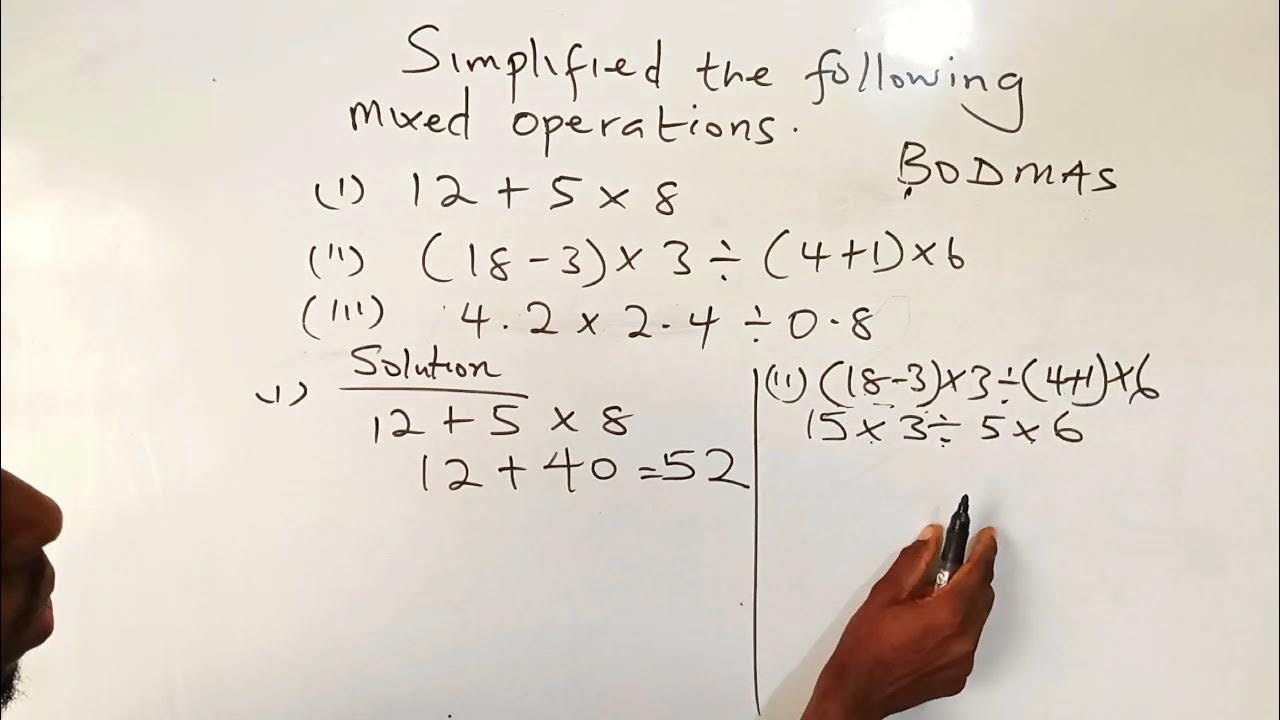 Simplified the following
mixed operations.
BODMAS
(i) 12 + 5 × 8
(ii) (18 - 3) × 3 ÷ (4+1) × 6
(iii) 4.2 × 2.4 ÷ 0.8
Solution
i) 12 + 5 × 8
12 + 40 = 52
(ii) (18-3)×3÷(4+1)×6
15 × 3 ÷ 5 × 6